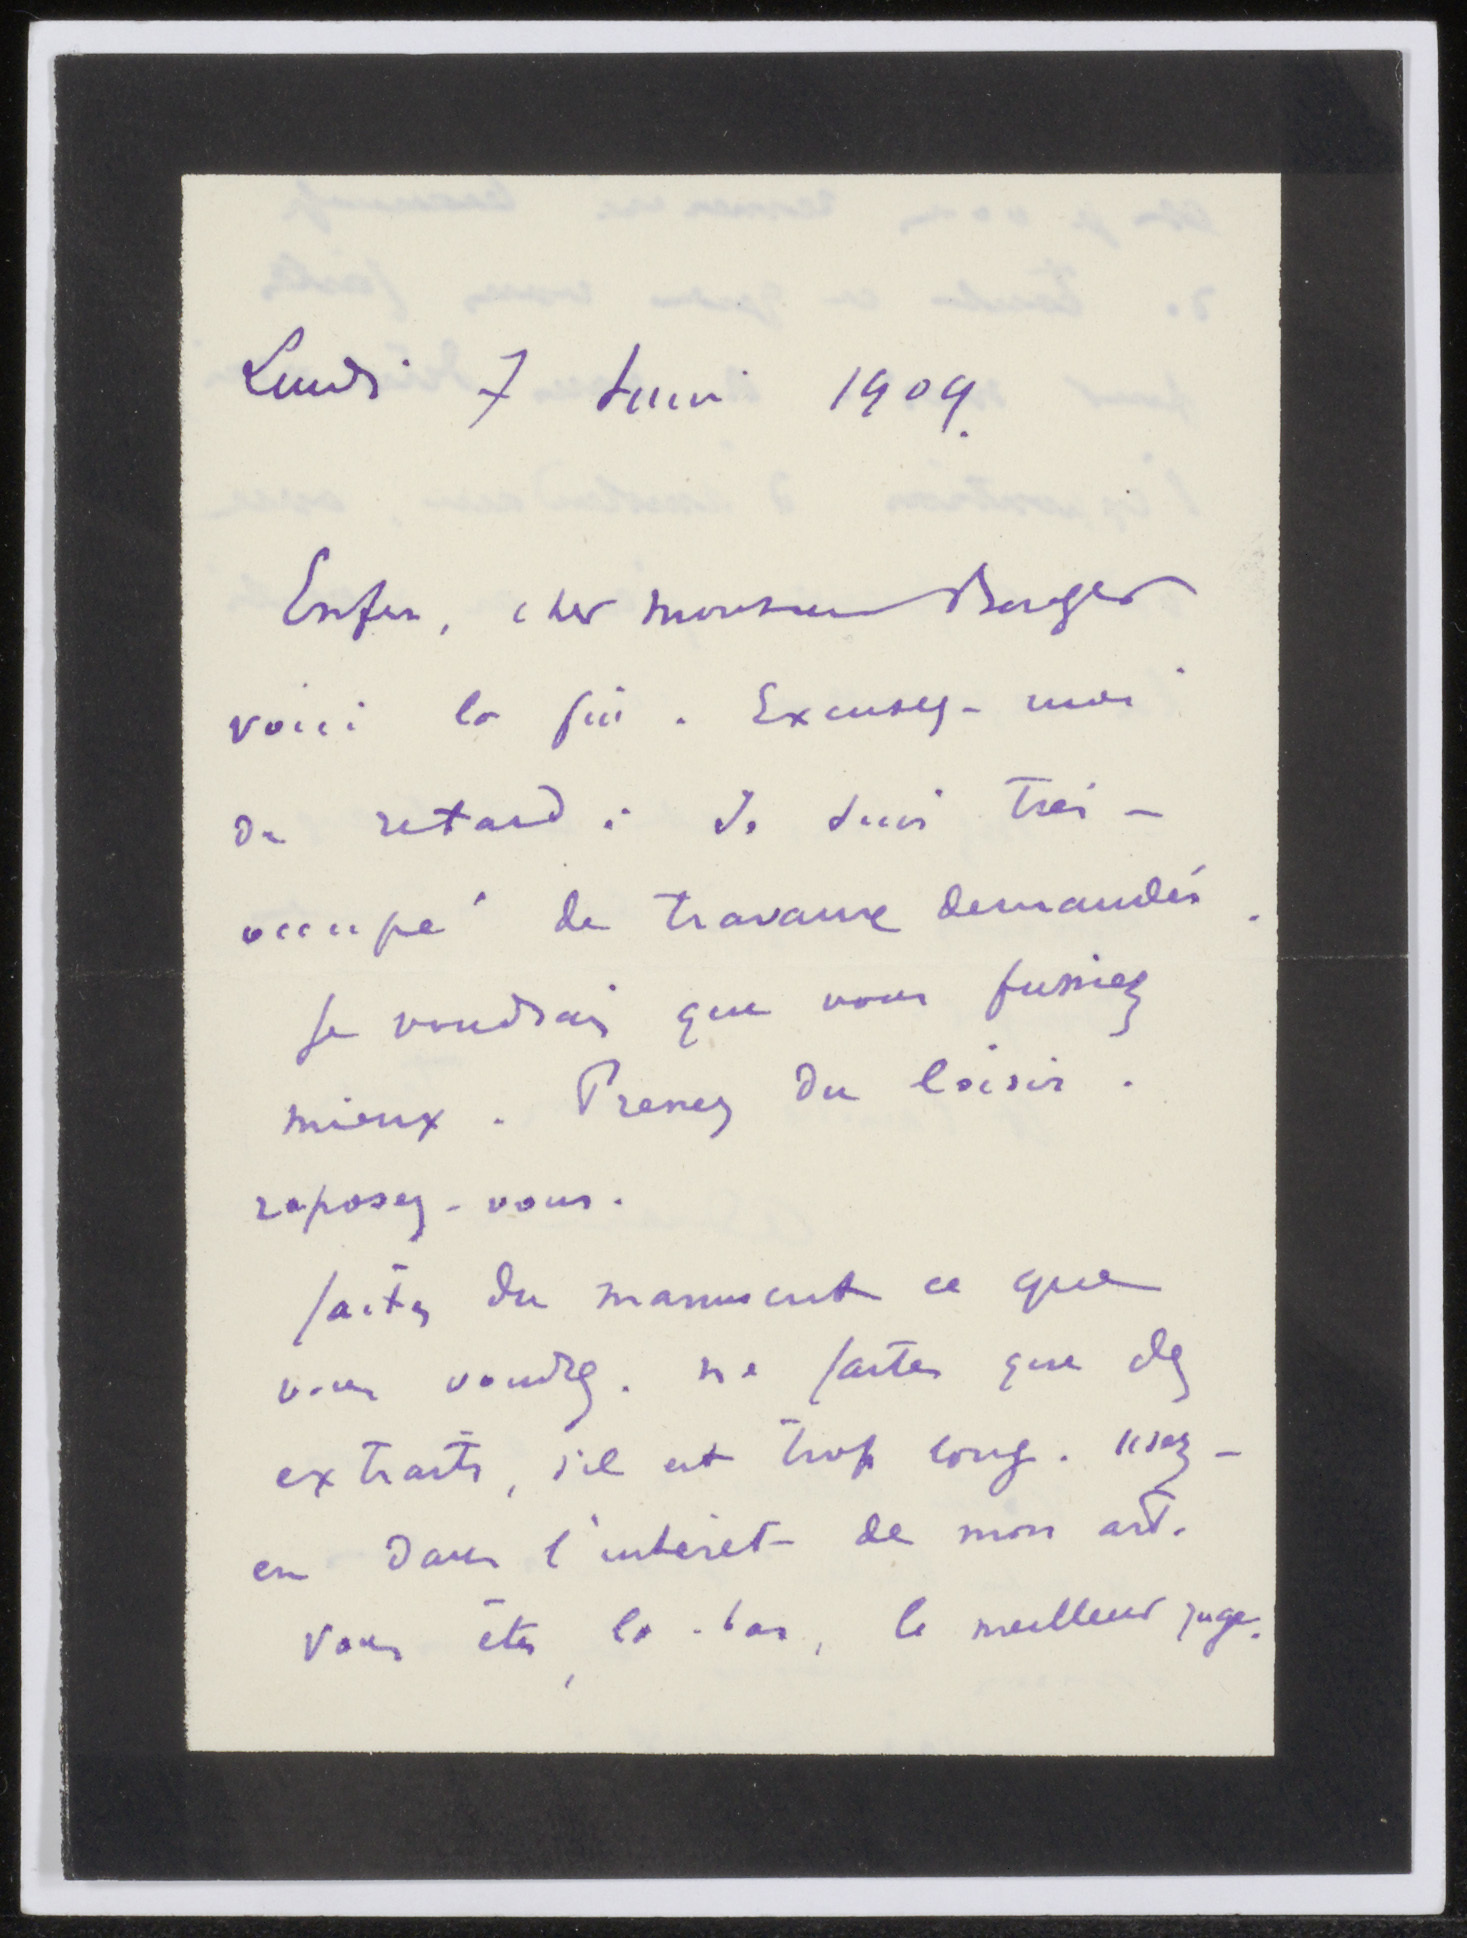 Lundi 7 Juin 1909.
Enfin, cher monsieur Bonger
voici la fin. Excusez-moi
du retard : Je suis très-
occupé de travaux demandés.
Je voudrais que vous fussiez
mieux. Prenez du loisir.
reposez-vous.
faites du manuscrit ce que
vous voudrez. ne faites que des
extraits, s'il est trop long. usez-
en dans l'intérêt de mon art.
Vous êtes, là-bas, le meilleur juge.